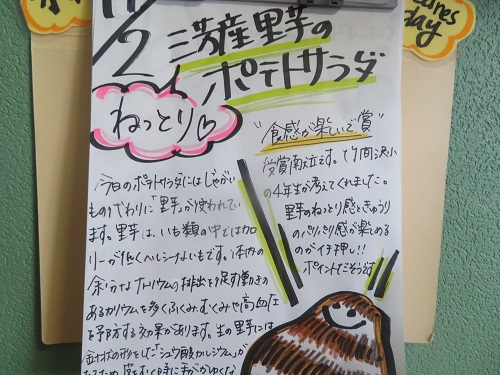 11/2
三芳産里芋の
ポテトサラダ
ねっとり♡
"食感が楽しいで賞"
の4年生が考えてくれました。
里芋のねっとり感ときゅうり
のパリパリ感が楽しめる
のがイチ押し!!
ポイントだそうです
今日のポテトサラダにはじゃがい
もの代わりに「里芋」が使われてい
ます。里芋は、いも類の中ではカロ
リーが低くヘルシーないもです。体内の
余分なナトリウムの排出を促す働きの
あるカリウムを多くふくみ、むくみや高血圧
を予防する効果があります。生の里芋には
針状の形をした「シュウ酸カルシウム」が
day